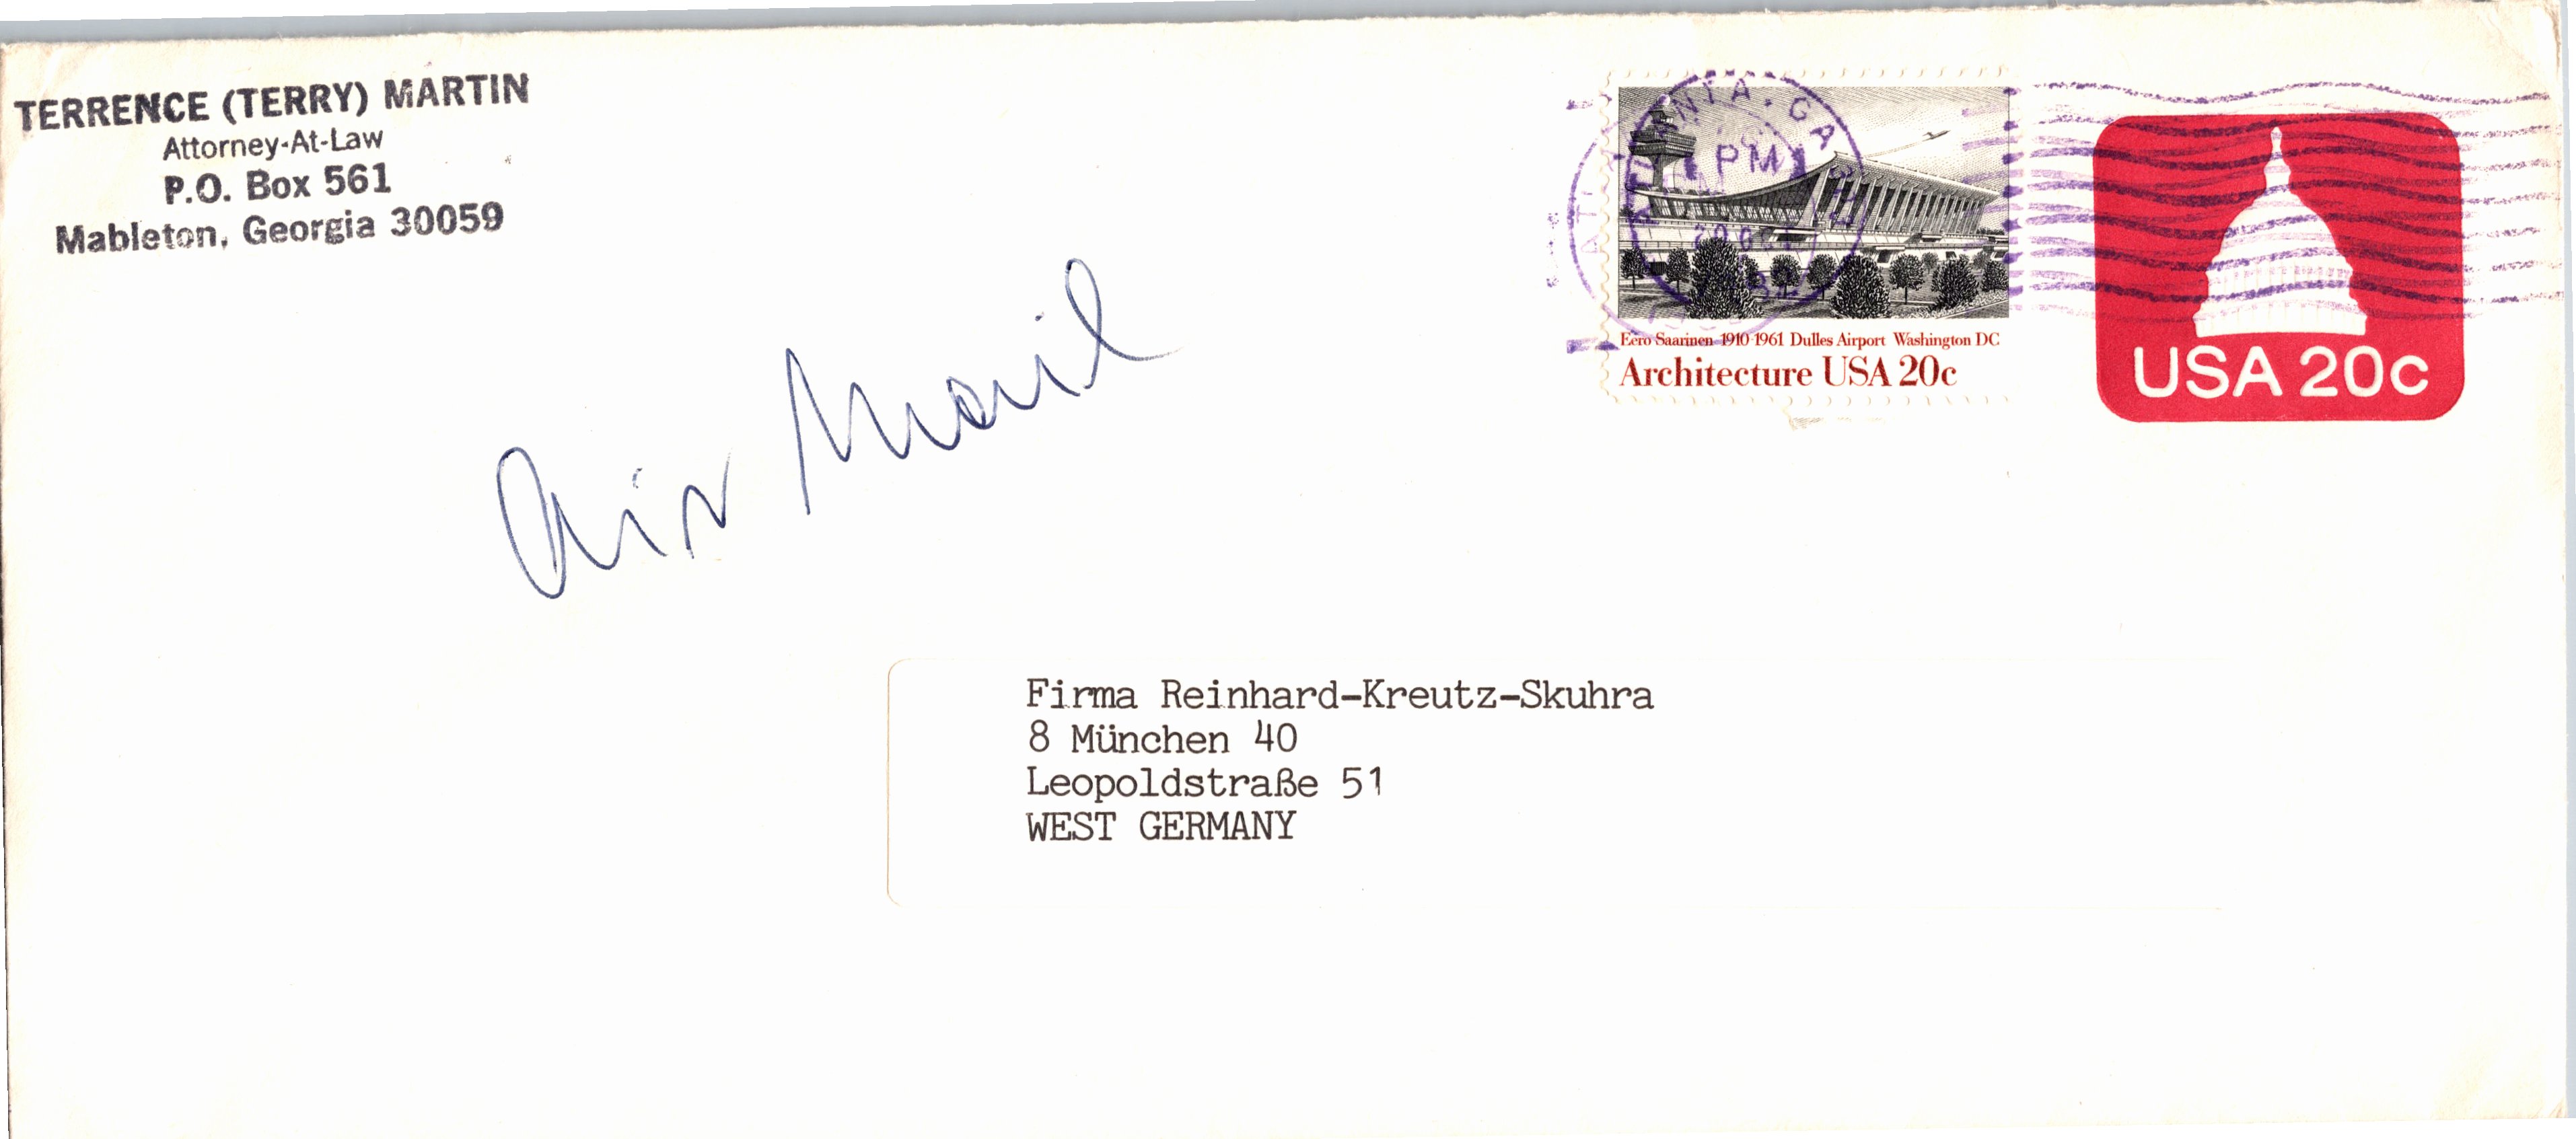 TERRENCE (TERRY) MARTIN
Attorney-At-Law
P.O. Box 561
Mableton, Georgia 30059
Air Mail
ATLANTA, GA
PM
Eero Saarinen 1910-1961 Dulles Airport Washington DC
Architecture USA 20c
USA 20c
Firma Reinhard-Kreutz-Skuhra
8 München 40
Leopoldstraße 51
WEST GERMANY